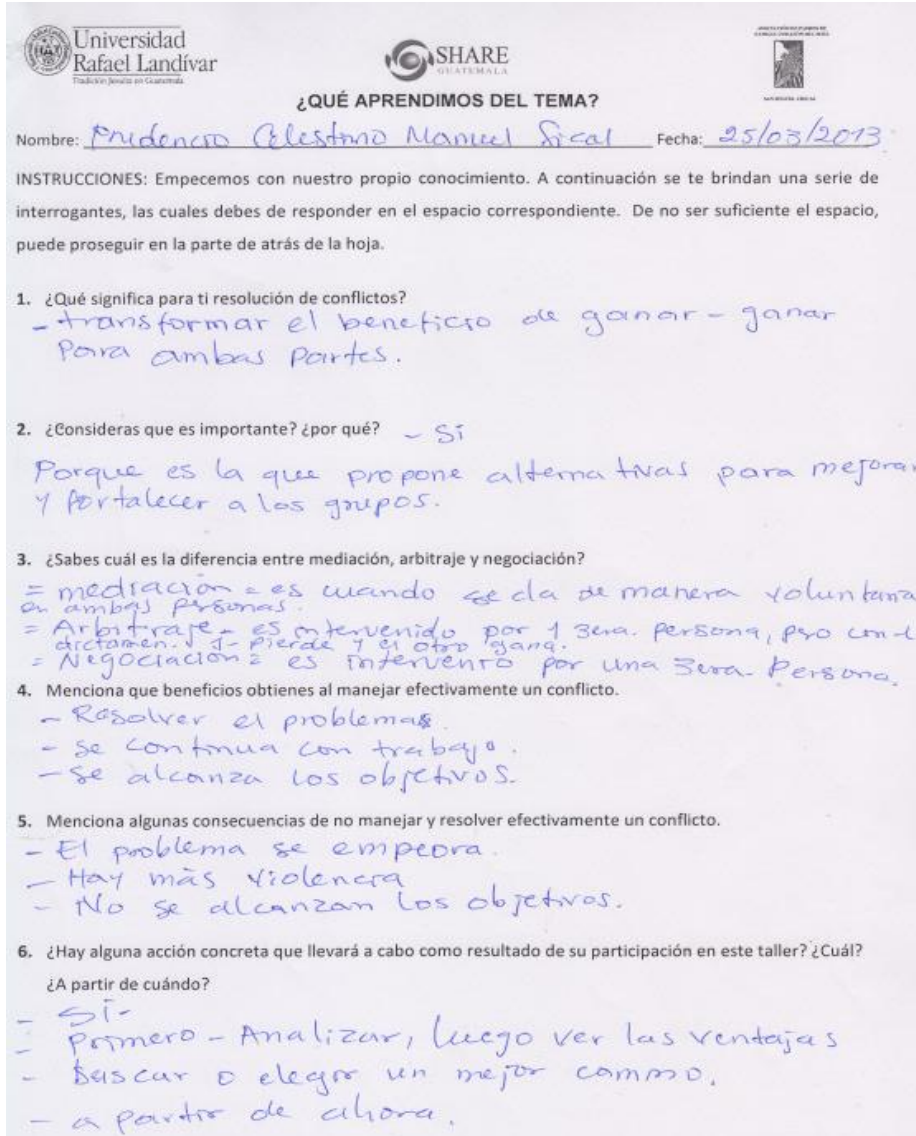 Universidad
Rafael Landívar
Tradición Jesuita en Guatemala
SHARE
GUATEMALA
¿QUÉ APRENDIMOS DEL TEMA?
Nombre: Prudencio Celestino Manuel Sical Fecha: 25/03/2013
INSTRUCCIONES: Empecemos con nuestro propio conocimiento. A continuación se te brindan una serie de
interrogantes, las cuales debes de responder en el espacio correspondiente. De no ser suficiente el espacio,
puede proseguir en la parte de atrás de la hoja.
1. ¿Qué significa para ti resolución de conflictos?
- transformar el beneficio de ganar - ganar
Para ambas partes.
2. ¿Consideras que es importante? ¿por qué? - Sí
Porque es la que propone alternativas para mejorar
y fortalecer a los grupos.
3. ¿Sabes cuál es la diferencia entre mediación, arbitraje y negociación?
= mediación = es cuando se da de manera voluntaria
en ambas personas.
= Arbitraje - es intervenido por 1 3era. persona, pero con
dictamen. 1- Pierde y el otro gana.
= Negociación = es intervenro por una 3era. Persona.
4. Menciona que beneficios obtienes al manejar efectivamente un conflicto.
- Resolver el problemas.
- se continua con trabajo.
- se alcanza los objetivos.
5. Menciona algunas consecuencias de no manejar y resolver efectivamente un conflicto.
- El problema se empeora.
- Hay más violencia
- No se alcanzan los objetivos.
6. ¿Hay alguna acción concreta que llevará a cabo como resultado de su participación en este taller? ¿Cuál?
¿A partir de cuándo?
- Sí-
- Primero - Analizar, luego ver las ventajas
- Buscar o elegir un mejor camino.
- a partir de ahora.